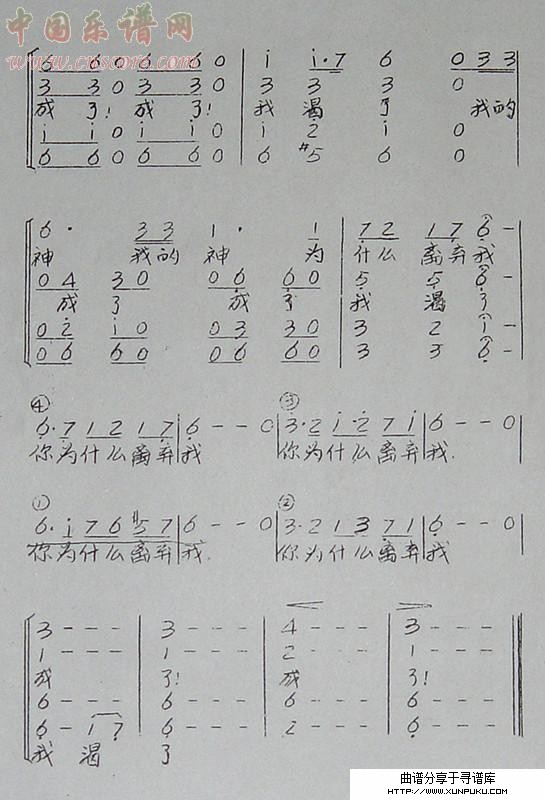 中国乐谱网
www.cnscore.com
6 60 6 60 | i i·7 6 0 33
3 30 3 30 | 3 3 3 0
成 了! 成 了! 我 渴 了 我的
i i0 i i0 | i 2 i 0
6 60 6 60 | 6 #5 6 0
6· 33 1· 1 | 72 17 6 -
神 我的 神 为 什么 离弃 我
04 30 06 60 | 5 5 6 -
成 了 成 了 我 渴 了
02 i0 03 30 | 3 2 i -
06 60 06 60 | 3 3 6 -
④ ③
6·71217|6--0|3·2i·27i|6--0|
你为什么离弃我 你为什么离弃我.
① ②
6·i76#57|6--0 3·21371|6--0|
你为什么离弃我. 你为什么离弃我
3 - - - | 3 - - - | 4 - - - | 3 - - -
1 - - - | 1 - - - | 2 - - - | 1 - - -
成 了! 成 了!
6 - - - | 6 - - - | 6 - - - | 6 - - -
6 - i 7 | 6 - - - | 2 - - - | 6 - - -
我 渴 了
曲谱分享于寻谱库
HTTP://WWW.XUNPUKU.COM